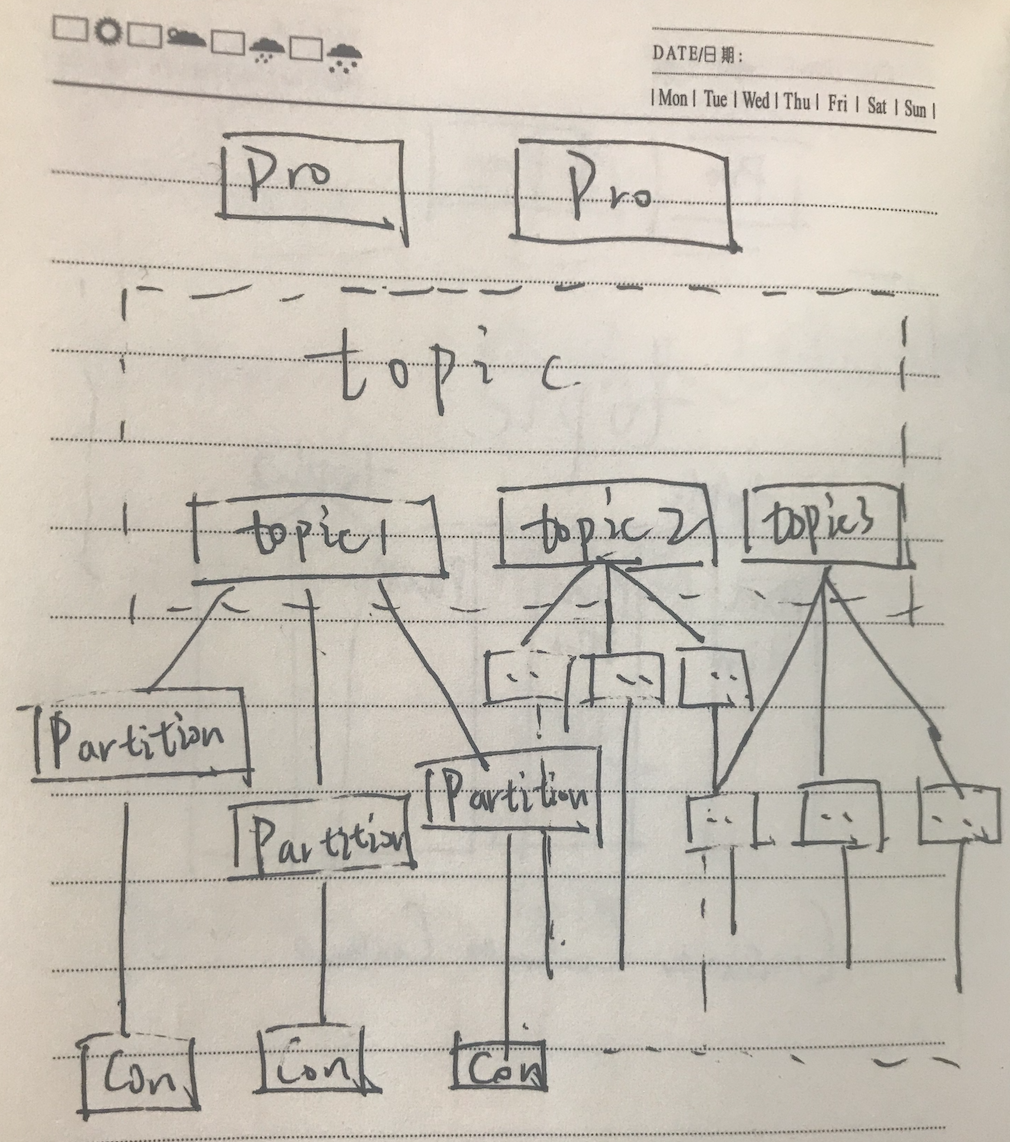 DATE/日期:
| Mon | Tue | Wed | Thu | Fri | Sat | Sun |
Pro Pro
topic
topic1 topic2 topic3
Partition
Partition
Partition
Con Con Con